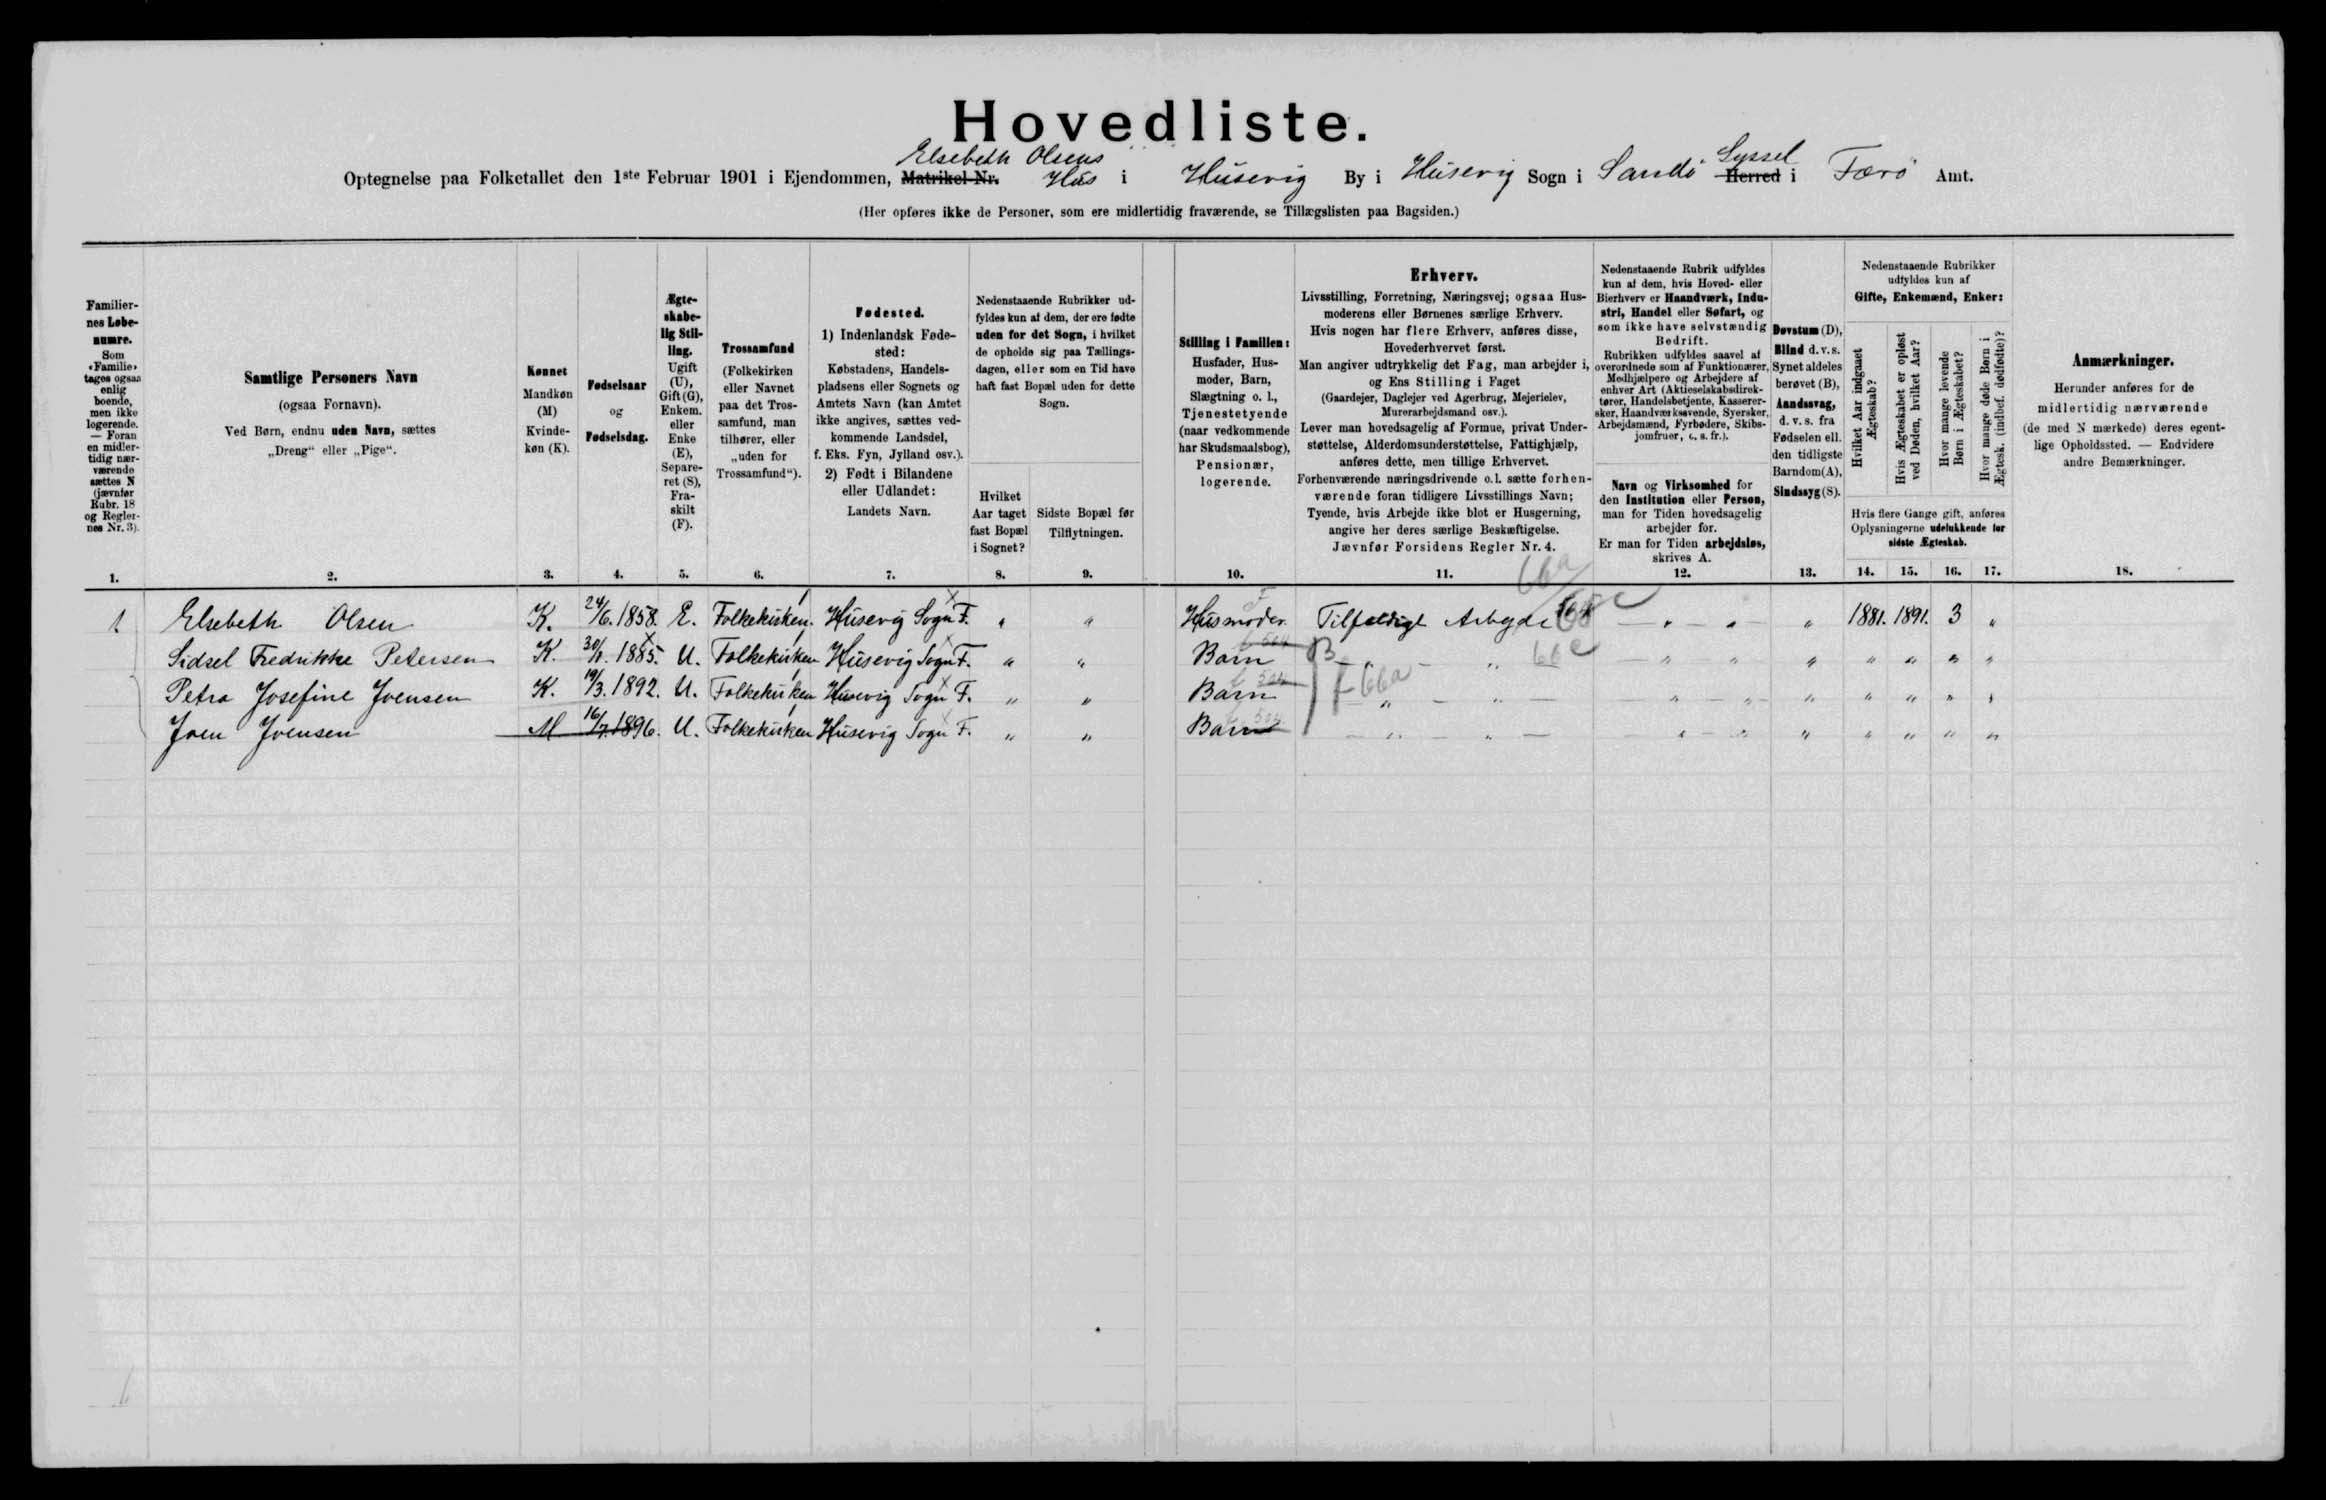 Hovedliste.
Elsebeth Olsens Syssel
Optegnelse paa Folketallet den 1ste Februar 1901 i Ejendommen, Matrikel-Nr. Hus i Husevig By i Husevig Sogn i Sandö Herred i Færö Amt.
(Her opføres ikke de Personer, som ere midlertidig fraværende, se Tillægslisten paa Bagsiden.)
Familiernes Løbenumre.
Som
„Familie“
tages ogsaa
enlig
boende,
men ikke
logerende.
— Foran
en midler-
tidig nær-
værende
sættes N
(jævnfør
Rubr. 18
og Regler-
nes Nr. 3).
1.
Samtlige Personers Navn
(ogsaa Fornavn).
Ved Børn, endnu uden Navn, sættes
„Dreng“ eller „Pige“.
2.
Kønnet
Mandkøn
(M)
Kvinde-
køn (K).
3.
Fødselsaar
og
Fødselsdag.
4.
Ægte-
skabe-
lig Stil-
ling.
Ugift
(U),
Gift (G),
Enkem.
eller
Enke
(E),
Separe-
ret (S),
Fra-
skilt
(F).
5.
Trossamfund
(Folkekirken
eller Navnet
paa det Tros-
samfund, man
tilhører, eller
„uden for
Trossamfund“).
6.
Fødested.
1) Indenlandsk Føde-
sted:
Købstadens, Handels-
pladsens eller Sognets og
Amtets Navn (kan Amtet
ikke angives, sættes ved-
kommende Landsdel,
f. Eks. Fyn, Jylland osv.).
2) Født i Bilandene
eller Udlandet:
Landets Navn.
7.
Nedenstaaende Rubrikker ud-
fyldes kun af dem, der ere fødte
uden for det Sogn, i hvilket
de opholde sig paa Tællings-
dagen, eller som en Tid have
haft fast Bopæl uden for dette
Sogn.
Hvilket
Aar taget
fast Bopæl
i Sognet?
8.
Sidste Bopæl før
Tilflytningen.
9.
Stilling i Familien:
Husfader, Hus-
moder, Barn,
Slægtning o. l.,
Tjenestetyende
(naar vedkommende
har Skudsmaalsbog),
Pensionær,
logerende.
10.
Erhverv.
Livsstilling, Forretning, Næringsvej; ogsaa Hus-
moderens eller Børnenes særlige Erhverv.
Hvis nogen har flere Erhverv, anføres disse,
Hovederhvervet først.
Man angiver udtrykkelig det Fag, man arbejder i,
og Ens Stilling i Faget
(Gaardejer, Daglejer ved Agerbrug, Mejerielev,
Murerarbejdsmand osv.).
Lever man hovedsagelig af Formue, privat Under-
støttelse, Alderdomsunderstøttelse, Fattighjælp,
anføres dette, men tillige Erhvervet.
Forhenværende næringsdrivende o. l. sætte forhen-
værende foran tidligere Livsstillings Navn;
Tyende, hvis Arbejde ikke blot er Husgerning,
angive her deres særlige Beskæftigelse.
Jævnfør Forsidens Regler Nr. 4.
11.
Nedenstaaende Rubrik udfyldes
kun af dem, hvis Hoved- eller
Bierhverv er Haandværk, Indu-
stri, Handel eller Søfart, og
som ikke have selvstændig
Bedrift.
Rubrikken udfyldes saavel af
overordnede som af Funktionærer,
Medhjælpere og Arbejdere af
enhver Art (Aktieselskabsdirek-
tører, Handelsbetjente, Kasserer-
sker, Haandværkssvende, Syersker,
Arbejdsmænd, Fyrbødere, Skibs-
jomfruer, o. s. fr.).
Navn og Virksomhed for
den Institution eller Person,
man for Tiden hovedsagelig
arbejder for.
Er man for Tiden arbejdsløs,
skrives A.
12.
Døvstum (D),
Blind d. v. s.
Synet aldeles
berøvet (B),
Aandssvag,
d. v. s. fra
Fødselen ell.
den tidligste
Barndom (A),
Sindssyg (S).
13.
Nedenstaaende Rubrikker
udfyldes kun af
Gifte, Enkemænd, Enker:
Hvilket Aar indgaaet
Ægteskab?
Hvis Ægteskabet er opløst
ved Døden, hvilket Aar?
Hvor mange levende
Børn i Ægteskabet?
Hvor mange døde Børn i
Ægtesk. (indbef. dødfødte)?
Hvis flere Gange gift, anføres
Oplysningerne udelukkende for
sidste Ægteskab.
14. 15. 16. 17.
Anmærkninger.
Herunder anføres for de
midlertidig nærværende
(de med N mærkede) deres egent-
lige Opholdssted. — Endvidere
andre Bemærkninger.
18.
66a
1 Elsebeth Olsen K. 24/6. 1858. E. Folkekirken. Husevig Sogn F. " " Husmoder. Tilfældigt Arbejde — " — " " 1881. 1891. 3 "
Sidsel Fredrikke Petersen K. 1885. U. Folkekirken Husevig Sogn F. " " Barn — " — " 66c — " " " " " " "
Petra Josefine Joensen K. 19/3. 1892. U. Folkekirken Husevig Sogn F. " " Barn 66a — " — " — " — " " " " " "
Joen Joensen M 16/7. 1896. U. Folkekirken Husevig Sogn F. " " Barn — " — " — " — " " " " " "